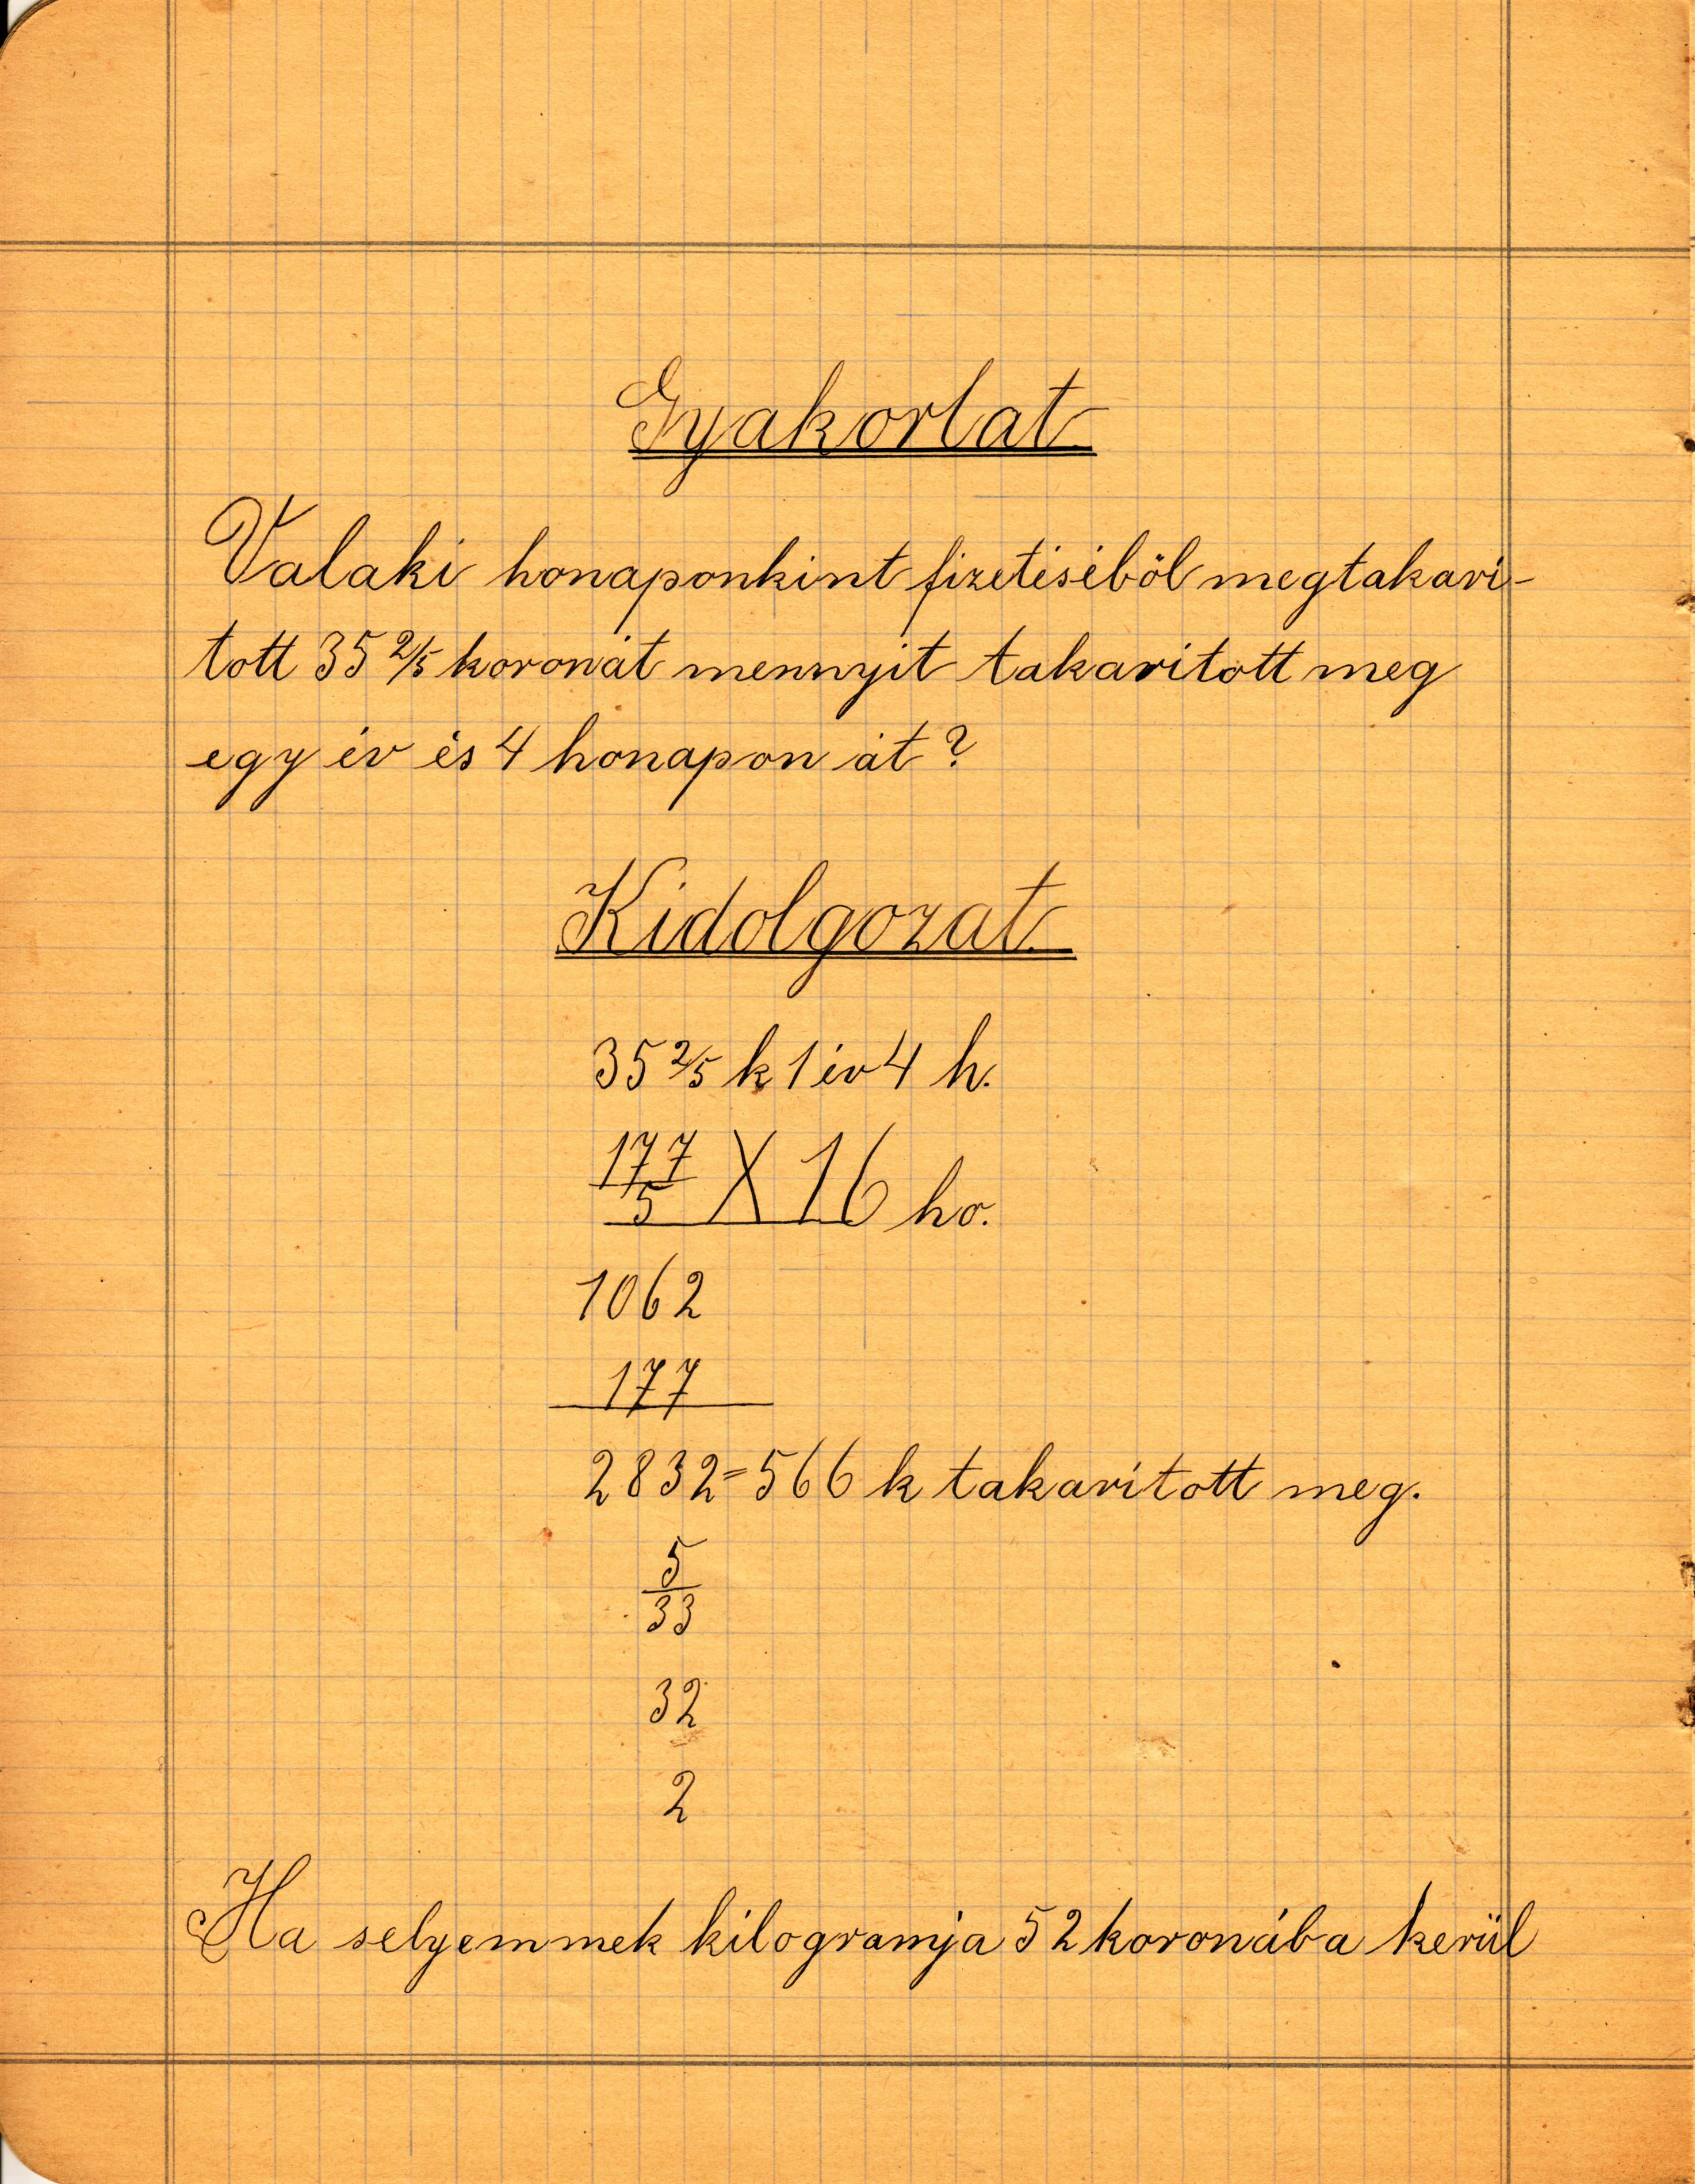 Gyakorlat
Valaki honaponkint fizetéséböl megtakari-
tott 35 2/5 koronát mennyit takaritott meg
egy év és 4 honapon át?
Kidolgozat
35 2/5 k 1 év 4 h.
177
5 X 16 ho.
1062
177
2832=566 k takaritott meg.
5
33
32
2
Ha selyemmek kilogramja 52 koronába kerül